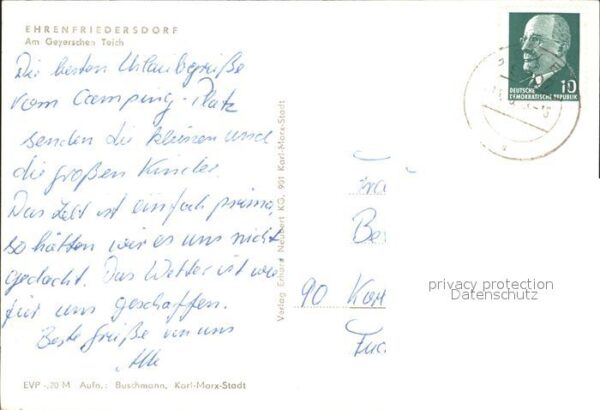 EHRENFRIEDERSDORF
Am Geyerschen Teich
Die besten Urlaubsgrüße
vom Camping-Platz
senden die kleinen und
die großen Kinder.
Das Zelt ist einfach prima,
so hätten wir es uns nicht
gedacht. Das Wetter ist wie
für uns geschaffen.
Beste Grüße von uns
Alle
EVP -,20 M Aufn.: Buschmann, Karl-Marx-Stadt
Verlag Erhard Neubert KG, 901 Karl-Marx-Stadt
DEUTSCHE
DEMOKRATISCHE REPUBLIK
10
Be
90 Kar
privacy protection
Datenschutz